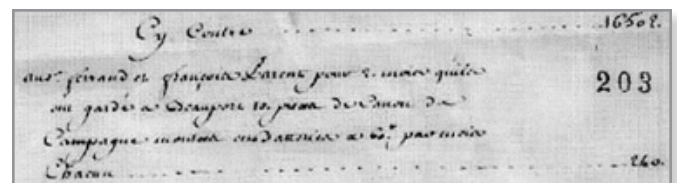 Cy Contre 1650 #.
203
aux s. ferand et françois Parent pour 2. mois quils
ont gardé a Beauport 10. pieces de Canon de
Campagne montées en batteries a 60 # par mois
Chacun 240.